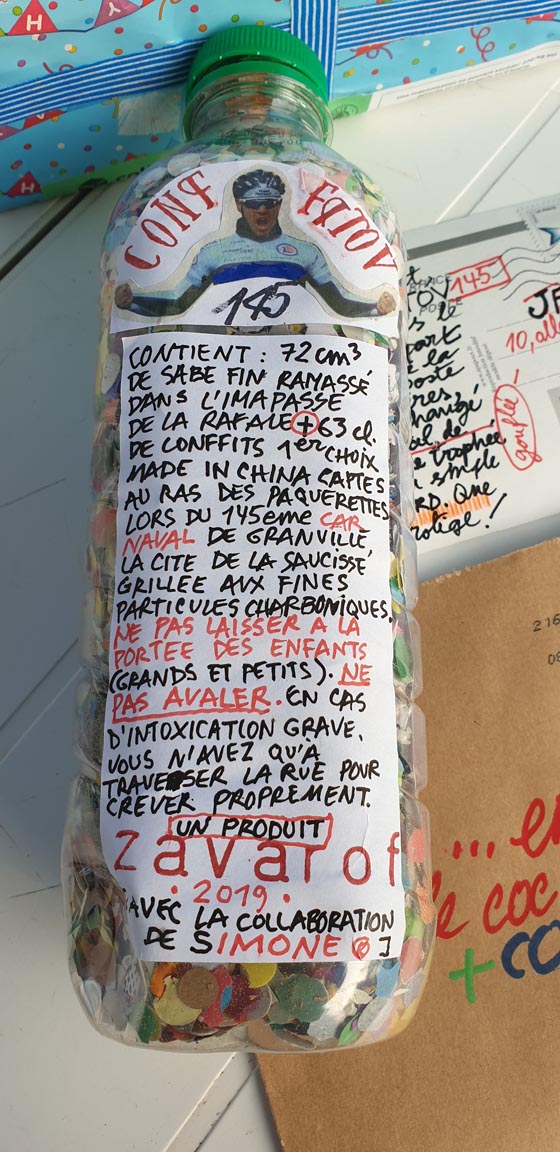 CONF
FITOV
145
CONTIENT : 72 cm3
DE SABE FIN RAMASSÉ
DANS L'IMAPASSE
DE LA RAFALE + 63 cl.
DE CONFFITS 1er CHOIX
MADE IN CHINA CAPTES
AU RAS DES PAQUERETTES
LORS DU 145eme CAR
NAVAL DE GRANVILLE,
LA CITE DE LA SAUCISSE
GRILLEE AUX FINES
PARTICULES CHARBONIQUES.
NE PAS LAISSER A LA
PORTEE DES ENFANTS
(GRANDS ET PETITS). NE
PAS AVALER. EN CAS
D'INTOXICATION GRAVE,
VOUS N'AVEZ QU'À
TRAVERSER LA RUE POUR
CREVER PROPREMENT.
UN PRODUIT
zavarof
. 2019 .
AVEC LA COLLABORATION
DE SIMONE
145
POSTE
10, all
gonflée
poste
trophée
simple
RD. Que
... en
e coc
+CO
216